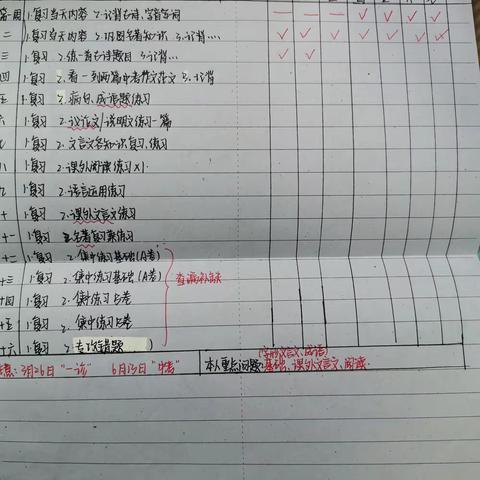 第一周 1.复习当天内容 2.记背古诗,字音字词
二 1.复习当天内容 2.巩固名著知识 3.记背...
三 1.复习 2.练一套古诗题目 3.记背...
四 1.复习 2.看一到两篇中考作文范文 3.记背
五 1.复习 2.病句、成语题练习
六 1.复习 2.议论文/说明文练习一篇
七 1.复习 2.文言文各知识复习、练习
八 1.复习 2.课外阅读练习x1
九 1.复习 2.语言运用练习
十 1.复习 2.课外文言文练习
十一 1.复习 名著复习兼练习
十二 1.复习 2.集中练习基础(A卷)
十三 1.复习 2.集中练习基础(A卷) 查漏补缺
十四 1.复习 2.集中练习B卷
十五 1.复习 2.集中练习B卷
十六 1.复习 2.专攻错题
(字形文言文、成语)
3月26日"一诊" 6月13日"中考" 本人重点问题:基础、课外文言文、阅读.